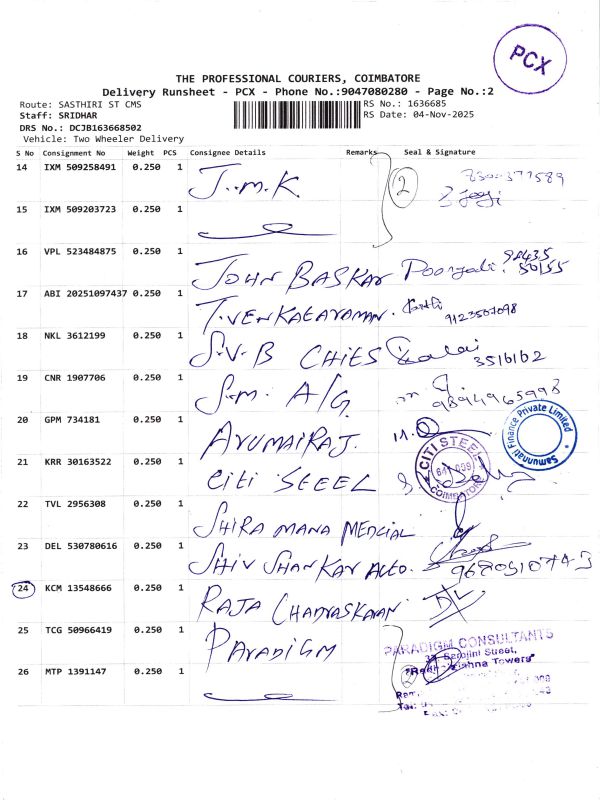 PCX
THE PROFESSIONAL COURIERS, COIMBATORE
Delivery Runsheet - PCX - Phone No.:9047080280 - Page No.:2
Route: SASTHIRI ST CMS RS No.: 1636685
Staff: SRIDHAR RS Date: 04-Nov-2025
DRS No.: DCJB163668502
Vehicle: Two Wheeler Delivery
S No Consignment No Weight PCS Consignee Details Remarks Seal & Signature
14 IXM 509258491 0.250 1 J..M.K 2
15 IXM 509203723 0.250 1
16 VPL 523484875 0.250 1 JOHN BASKAR 50155
17 ABI 20251097437 0.250 1 T.VENKATARAMAN. 9123507098
18 NKL 3612199 0.250 1 S.V.B CHITS
19 CNR 1907706 0.250 1 S.M. A/G 9894965998
20 GPM 734181 0.250 1 ARUMAIRAJ.
Samunnati Finance Private Limited
21 KRR 30163522 0.250 1 Citi STEEL
CITI STEEL COIMBATORE
22 TVL 2956308 0.250 1 MEDCIAL
23 DEL 530780616 0.250 1 SHIV SHANKAR AUTO.
24 KCM 13548666 0.250 1 RAJA
25 TCG 50966419 0.250 1 PARADIGM
PARADIGM CONSULTANTS
Sarojini Street,
26 MTP 1391147 0.250 1 2